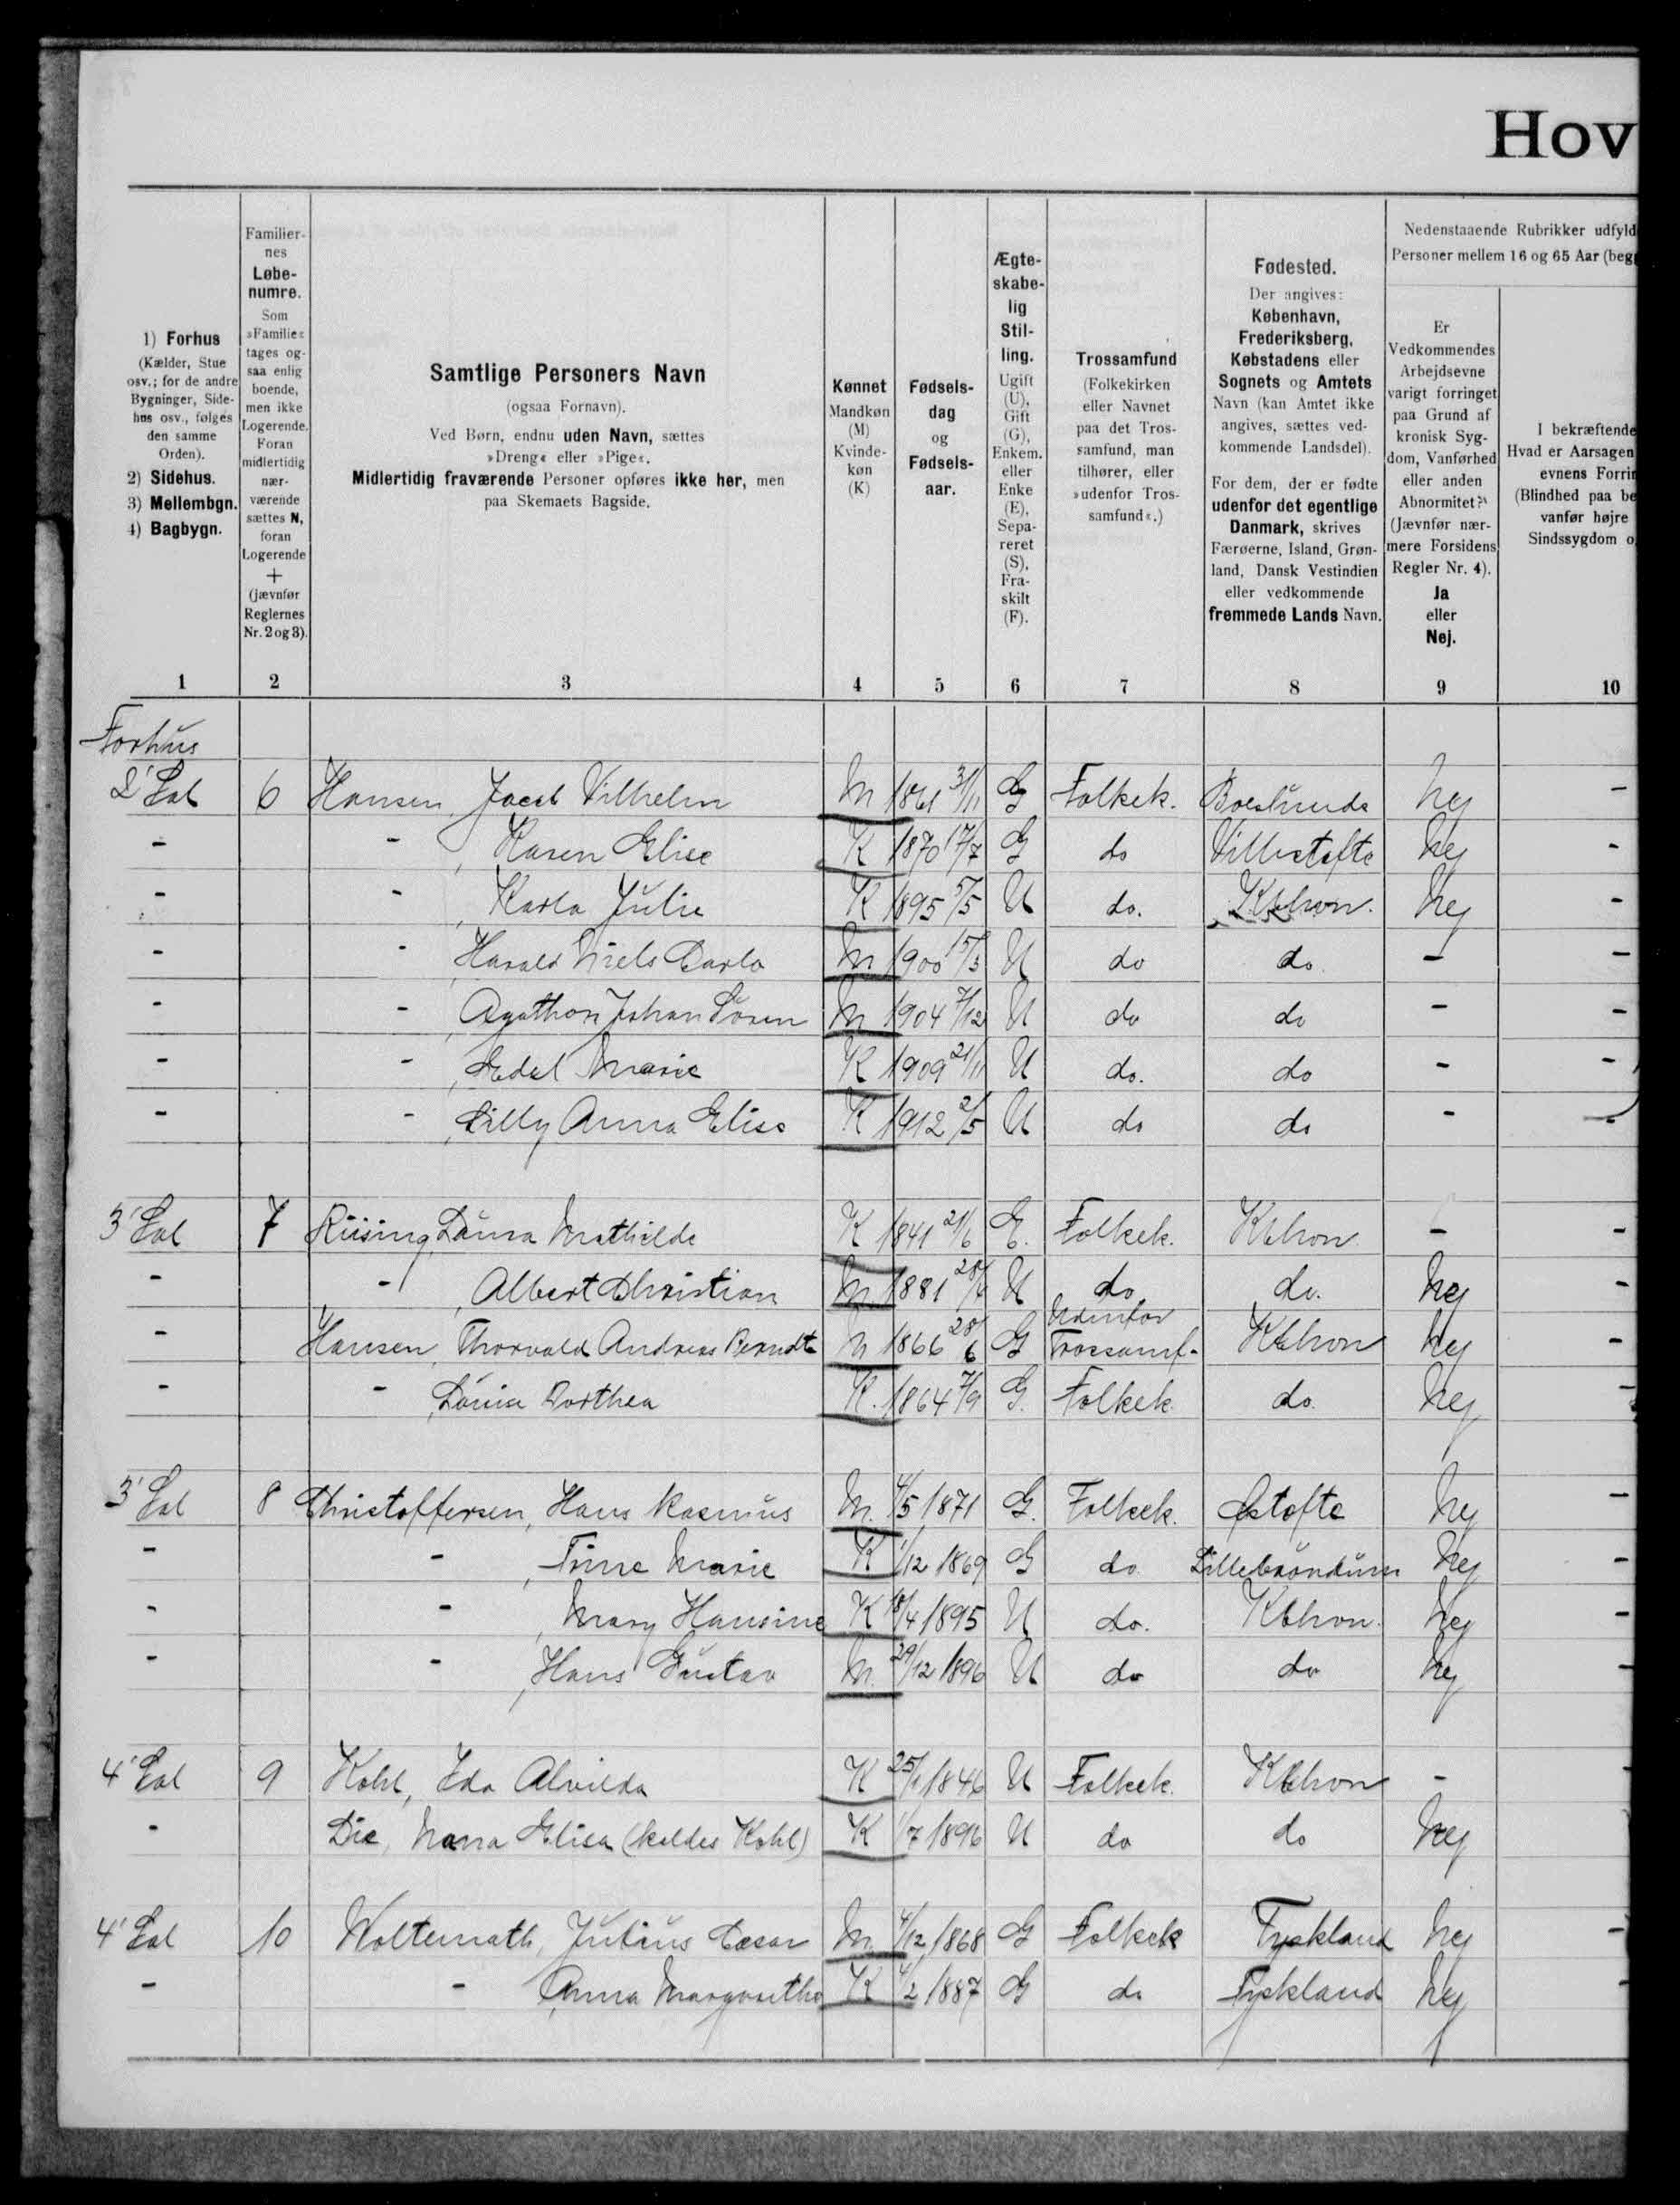 Hov
1) Forhus
(Kælder, Stue
osv.; for de andre
Bygninger, Side-
hus osv., følges
den samme
Orden).
2) Sidehus.
3) Mellembgn.
4) Bagbygn.
Familier-
nes
Løbe-
numre.
Som
»Familie«
tages og-
saa enlig
boende,
men ikke
Logerende.
Foran
midlertidig
nær-
værende
sættes N,
foran
Logerende
+
(jævnfør
Reglernes
Nr. 2 og 3).
Samtlige Personers Navn
(ogsaa Fornavn).
Ved Børn, endnu uden Navn, sættes
»Dreng« eller »Pige«.
Midlertidig fraværende Personer opføres ikke her, men
paa Skemaets Bagside.
Kønnet
Mandkøn
(M)
Kvinde-
køn
(K)
Fødsels-
dag
og
Fødsels-
aar.
Ægte-
skabe-
lig
Stil-
ling.
Ugift
(U),
Gift
(G),
Enkem.
eller
Enke
(E),
Sepa-
reret
(S),
Fra-
skilt
(F).
Trossamfund
(Folkekirken
eller Navnet
paa det Tros-
samfund, man
tilhører, eller
»udenfor Tros-
samfund«.)
Fødested.
Der angives:
København,
Frederiksberg,
Købstadens eller
Sognets og Amtets
Navn (kan Amtet ikke
angives, sættes ved-
kommende Landsdel).
For dem, der er fødte
udenfor det egentlige
Danmark, skrives
Færøerne, Island, Grøn-
land, Dansk Vestindien
eller vedkommende
fremmede Lands Navn.
Nedenstaaende Rubrikker udfyld
Personer mellem 16 og 65 Aar (beg
Er
Vedkommendes
Arbejdsevne
varigt forringet
paa Grund af
kronisk Syg-
dom, Vanførhed
eller anden
Abnormitet?
(Jævnfør nær-
mere Forsidens
Regler Nr. 4).
Ja
eller
Nej.
I bekræftende
Hvad er Aarsagen
evnens Forrin
(Blindhed paa be
vanfør højre
Sindssygdom o
1 2 3 4 5 6 7 8 9 10
Forhus
2' Sal 6 Hansen, Jacob Vilhelm M 1861 3/11 G Folkek. Boeslunde Nej -
- - , Karen Elise K 1870 17/7 G do Villestofte Nej -
- - , Karla Julie K 1895 5/5 U do. Kbhvn. Nej -
- - , Harald Niels Carlo M 1900 15/3 U do do. - -
- - , Agathon Johan Søren M 1904 7/12 U do do - -
- - , Edel Marie K 1909 21/11 U do. do - -
- - , Lilly Anna Elise K 1912 2/5 U do do - -
3' Sal 7 Riising, Laura Mathilde K 1841 21/6 E. Folkek. Kbhvn. - -
- - , Albert Christian M. 1881 U do do. Nej -
- Hansen, Thorvald Andreas Berndt M 1866 28/6 G Udenfor Trossamf. Kbhvn Nej -
- - , Dorthea K. 1864 7/9 G. Folkek. do. Nej -
3' Sal 8 Christoffersen, Hans Rasmus M. 4/5 1871 G. Folkek. Østofte Nej -
- - , Trine Marie K 1/12 1869 G do Lillebrøndum Nej -
- - , Mary Hansine K 18/4 1895 U do. Kbhvn. Nej -
- - , Hans Gustav M. 29/12 1896 U do do Nej -
4' Sal 9 Kohl, Ida Alvilda K 25/1 1846 U Folkek. Kbhvn - -
- Die, Nana Elisa (kaldes Kohl) K 1/7 1896 U do do Nej -
4' Sal 10 Woltemath, Julius Cæsar M. 4/12 1868 G Folkek Tyskland Nej -
- - , Anna Margrethe K 4/2 1887 G do Tyskland Nej -